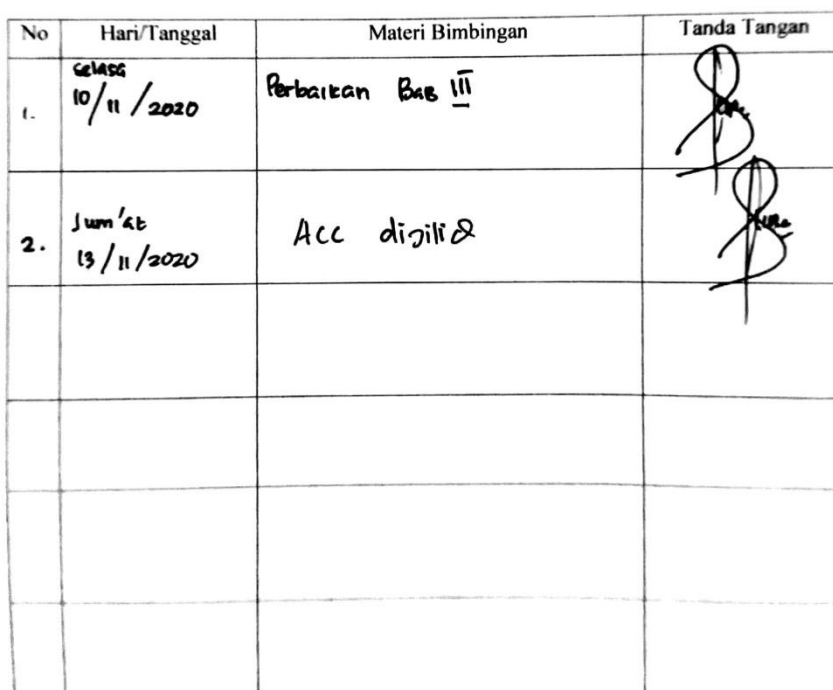 No Hari/Tanggal Materi Bimbingan Tanda Tangan
Selasa
1. 10/11/2020 Perbaikan Bab III
Jum'at
2. 13/11/2020 Acc dijilid